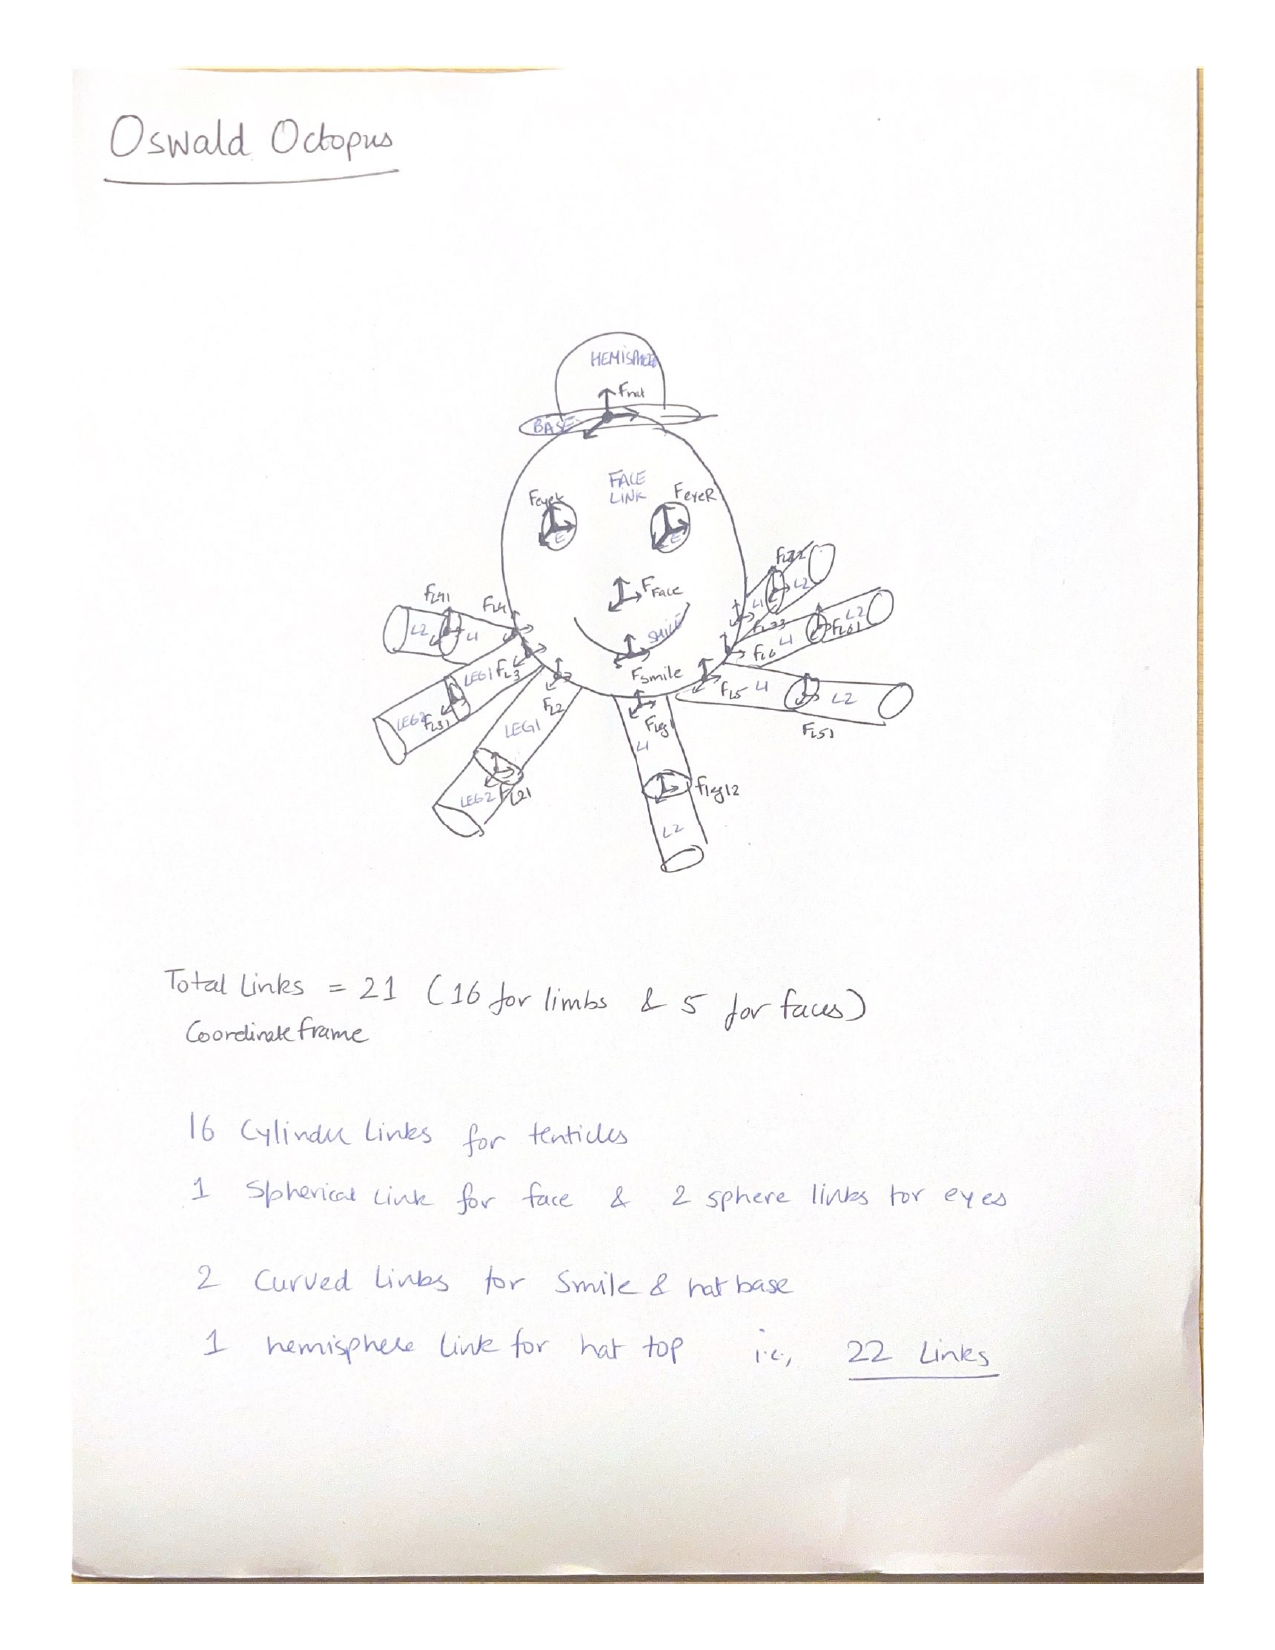 Oswald Octopus
HEMISPHERE
Fhat
BASE
FACE
LINK
FeyeR
E
E
FFace
SMILE
Fsmile
FL41
FL4
L2
L1
LEG1
FL3
LEG2
FL31
FL2
LEG1
LEG2
FL21
Fleg1
L1
Fleg12
L2
L1
L2
L1
L2
FL6
FL61
FL5
L1
L2
FL51
Total Links = 21 (16 for limbs & 5 for faces)
Coordinate frame
16 Cylinder Links for tenticles
1 Spherical Link for face & 2 sphere links for eyes
2 Curved Links for Smile & hat base
1 hemisphere Link for hat top i.e., 22 Links